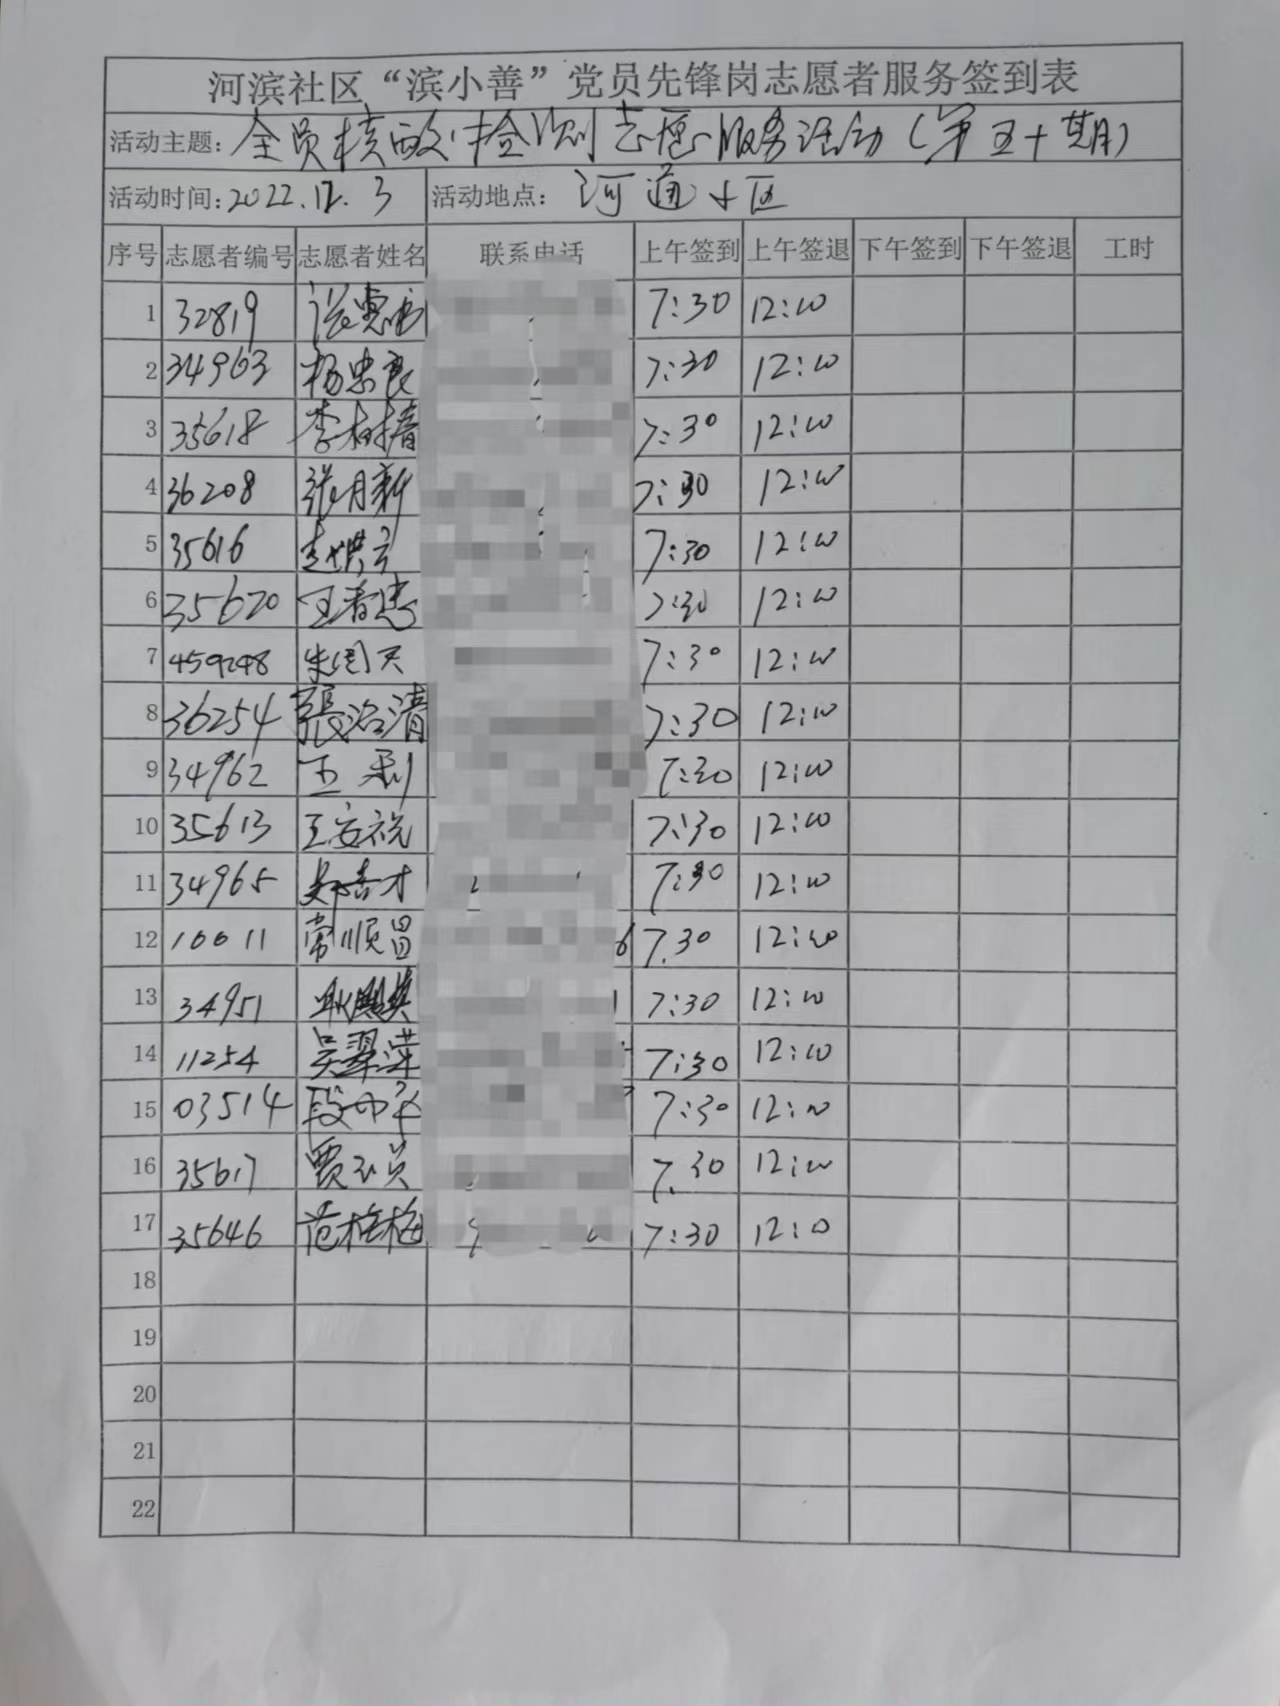 河滨社区“滨小善”党员先锋岗志愿者服务签到表
活动主题：全员核酸检测志愿服务活动（第五十期）
活动时间：2022.12.3 活动地点：河通小区
序号 志愿者编号 志愿者姓名 联系电话 上午签到 上午签退 下午签到 下午签退 工时
1 32819 7:30 12:00
2 34963 杨忠良 7:30 12:00
3 35618 李树椿 7:30 12:00
4 36208 张月新 7:30 12:00
5 35616 7:30 12:00
6 35620 王春忠 7:30 12:00
7 459248 朱国天 7:30 12:00
8 36254 張治清 7:30 12:00
9 34962 王利 7:30 12:00
10 35613 王安祝 7:30 12:00
11 34965 7:30 12:00
12 10011 常顺昌 7.30 12:00
13 34951 7:30 12:00
14 11254 吴翠萍 7:30 12:00
15 03514 7:30 12:00
16 35617 贾玉英 7.30 12:00
17 35646 范桂梅 7:30 12:0
18
19
20
21
22